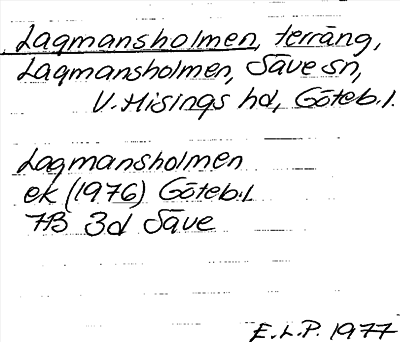 Lagmansholmen, terräng,
Lagmansholmen, Säve sn,
V. Hisings hd, Göteb. l.
Lagmansholmen
ek (1976) Göteb.l
7B 3d Säve
E.L.P. 1977